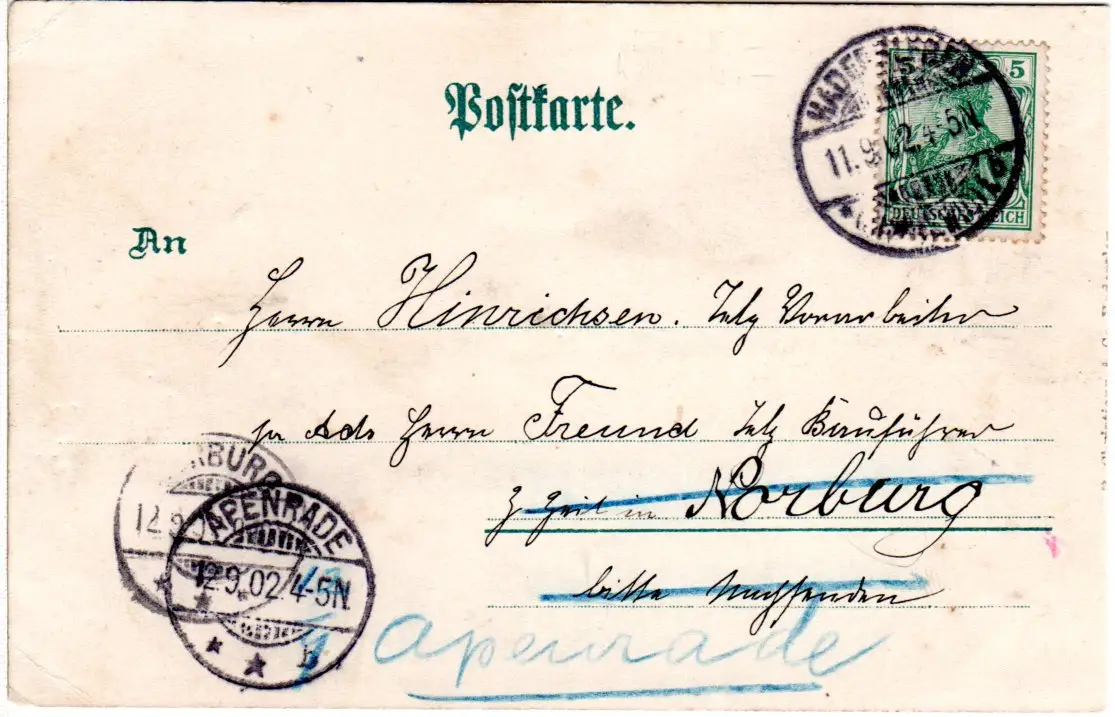 Postkarte.
HADERSLEBEN
11.9.02.4-5N
5
DEUTSCHES REICH
An
Herrn Hinrichsen. Telg Vorarbeiter
pr Ads Herrn Freund Telg Bauführer
z Zeit in Norburg
bitte Nachsenden
BURG
12.9
APENRADE
12.9.02.4-5N
Apenrade